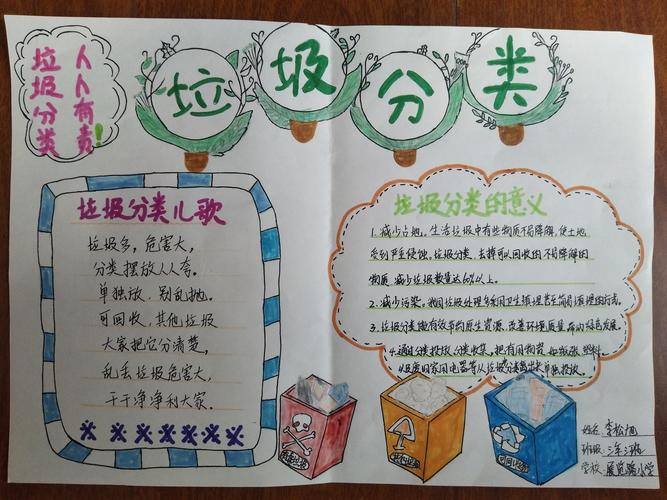 垃圾分类
人人有责!
垃圾分类
垃圾分类儿歌
垃圾多,危害大,
分类摆放人人夸。
单独放,别乱抛。
可回收,其他垃圾
大家把它分清楚,
乱丢垃圾危害大,
干干净净利大家。
垃圾分类的意义
1.减少占地。生活垃圾中有些物质不易降解,使土地
受到严重侵蚀。垃圾分类,去掉可以回收的不易降解的
物质,减少垃圾数量达60%以上。
2.减少污染。我国垃圾处理多采用卫生填埋甚至简易填埋的方式。
3.垃圾分类能有效节约原生资源,改善环境质量,
4.通过分类投放、分类收集,把有用物资,如纸张、塑料
以及废旧家用电器等从垃圾中
单独投放。
有害垃圾
其他垃圾
可回收物
姓名:李松
班级:三年
学校:展览路小学